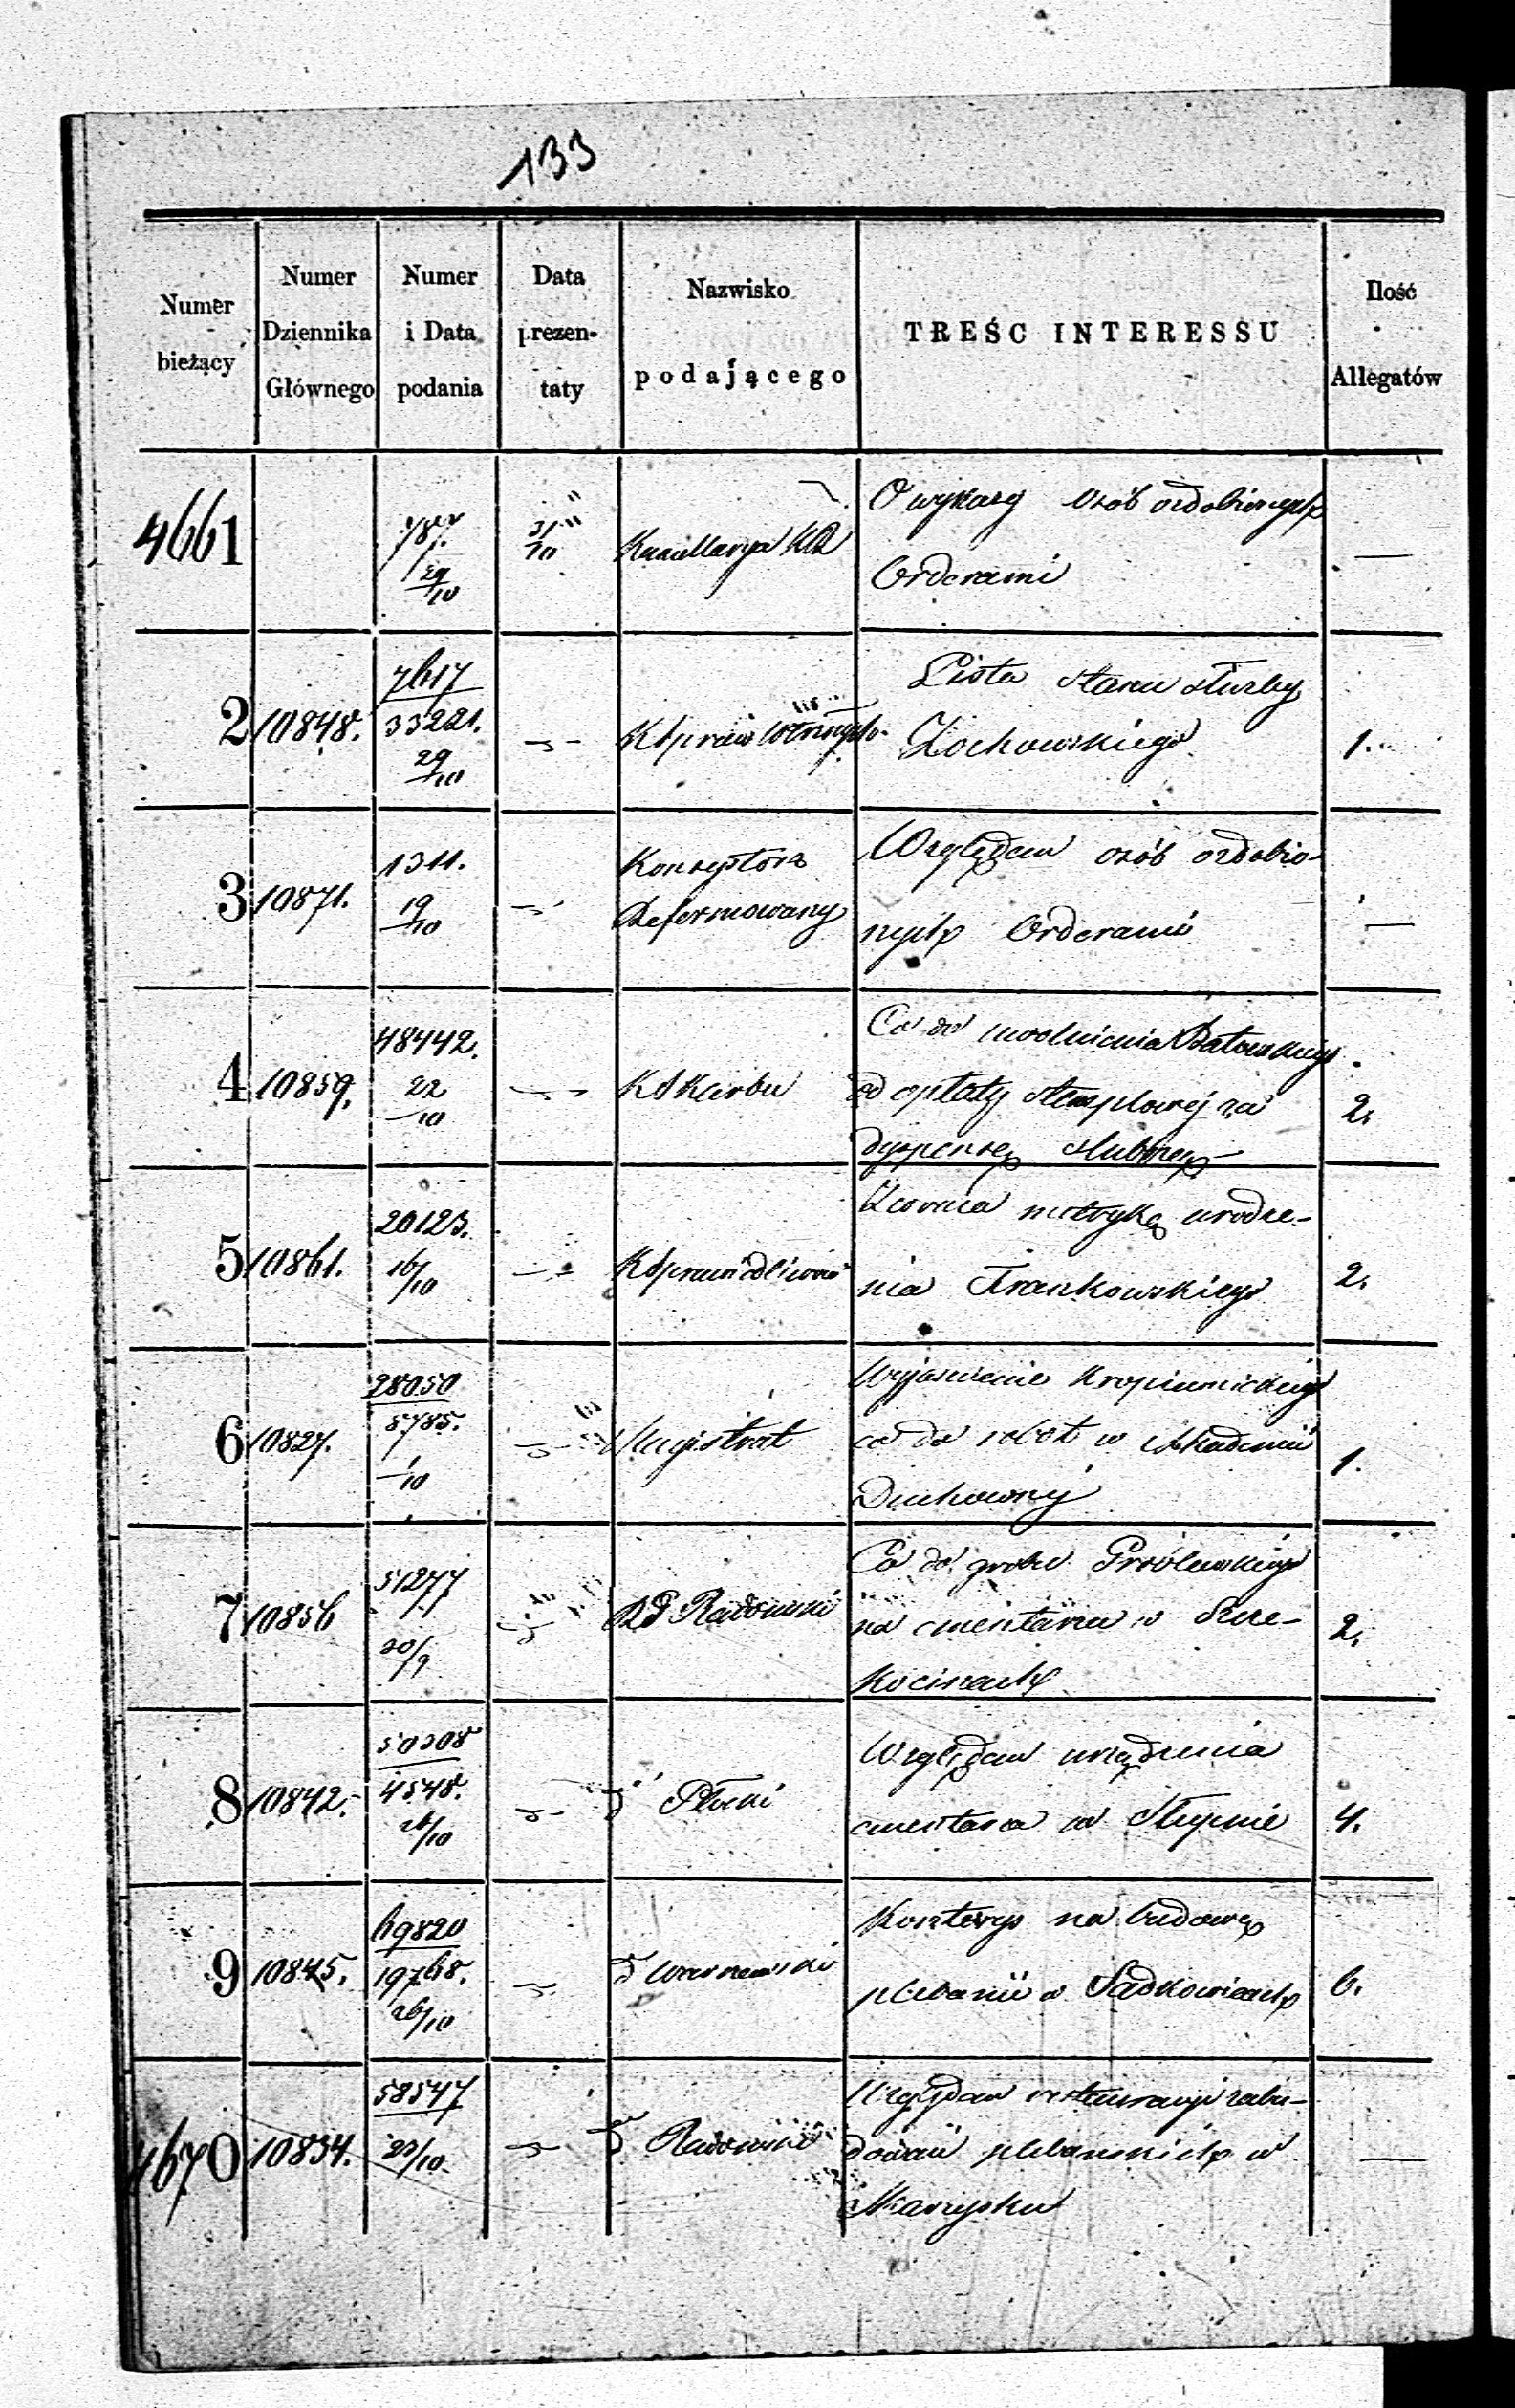 133
Numer bieżący
Numer Dziennika Głównego
Numer i Data podania
Data prezentaty
Nazwisko podającego
TREŚĆ INTERESSU
Ilość Allegatów
4661
787.
29/10
31/10
Kancellarya
O wykazy osób ozdobionych
Orderami
—
2
10848.
7617
33221.
29/10
Lista stanu służby
Żochowskiego
1.
3
10871.
1311.
19/10
Konsystorz
Reformowany
Względem osób ozdobio-
nych Orderami
—
4
10859.
48442.
22/10
K Skarbu
Co do uwolnienia
od opłaty stemplowej za
dyspensę ślubną
2.
5
10861.
20123.
16/10
Zwraca metrykę urodze-
nia Frankowskiego
2.
6
10827.
28050
8785.
1/10
Magistrat
Wyjaśnienie
co do robót w Akademii
Duchownej
1.
7
10856
51277
30/9
RG Radomski
Co do grobu
na cmentarzu w Szcze-
kocinach
2.
8
10842.
50308
4548.
26/10
d Płocki
Względem urządzenia
cmentarza w Słupnie
4.
9
10845.
69820
19768.
26/10
d Warszawski
Kosztorys na budowę
plebanii w Sadkowicach
6.
4670
10834.
58547
23/10
d Radomski
Względem restauracyi zabu-
dowań plebańskich w
—